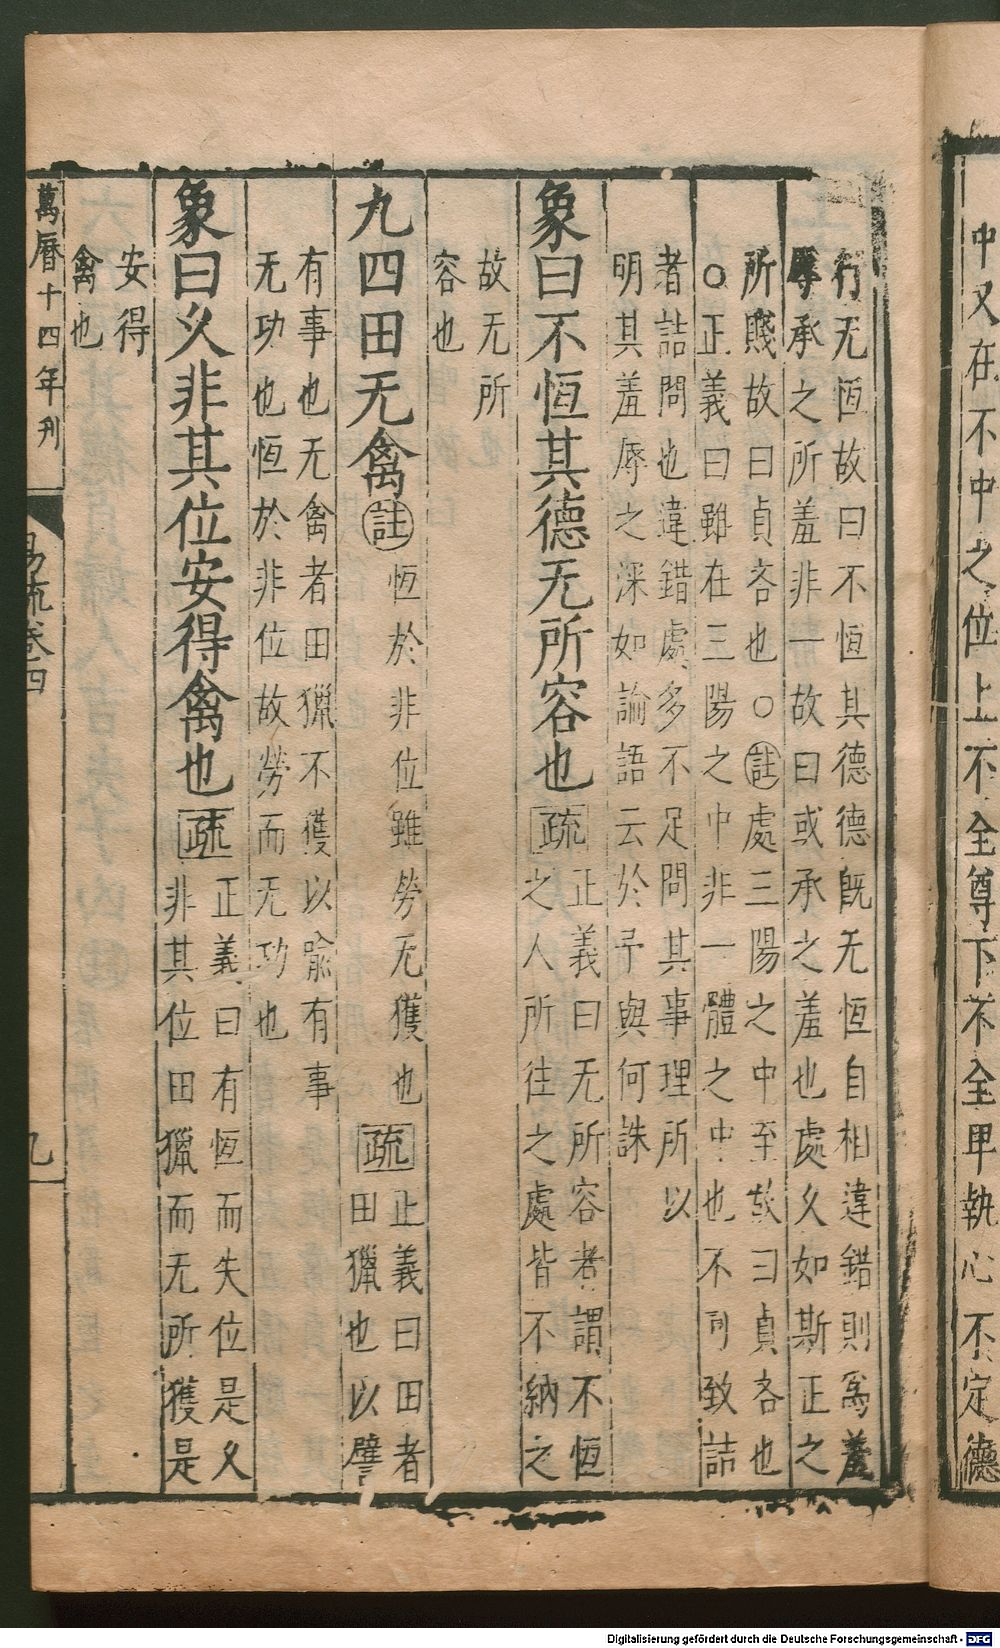 中又在不中之位上不全尊下不全卑執心不定德
行无恆故曰不恆其德德旣无恆自相違錯則爲羞
辱承之所羞非一故曰或承之羞也處久如斯正之
所賤故曰貞吝也○註處三陽之中至故曰貞吝也
○正義曰雖在三陽之中非一體之中也不可致詰
者詰問也違錯處多不足問其事理所以
明其羞辱之深如論語云於予與何誅
象曰不恆其德无所容也疏正義曰无所容者謂不恆
之人所往之處皆不納之
故无所
容也
九四田无禽註恆於非位雖勞无獲也疏正義曰田者
田獵也以譬
有事也无禽者田獵不獲以喻有事
无功也恆於非位故勞而无功也
象曰久非其位安得禽也疏正義曰有恆而失位是久
非其位田獵而无所獲是
安得
禽也
萬曆十四年刊
易疏卷四
九
Digitalisierung gefördert durch die Deutsche Forschungsgemeinschaft - DFG